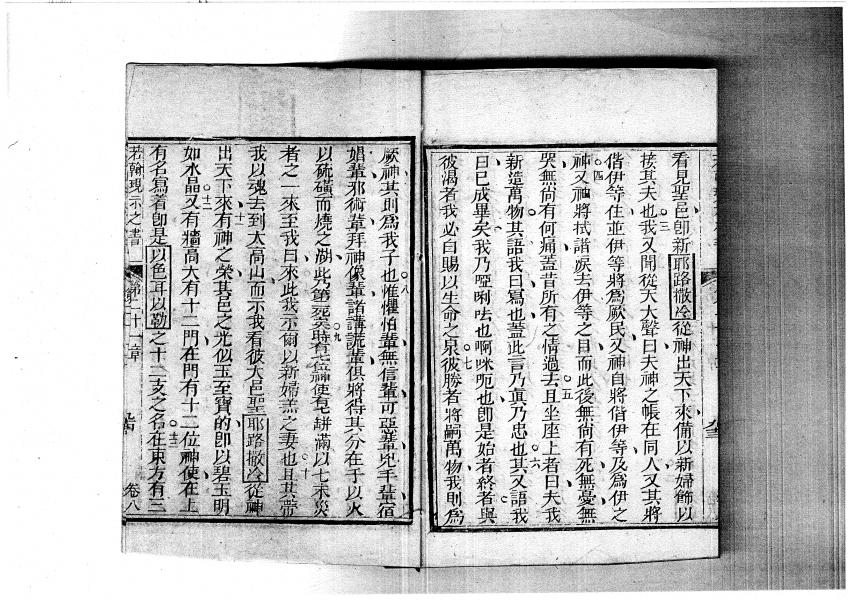 看見聖邑卽新耶路撒冷從神出天下來備以新婦飾以
接其夫也我又聞從天大聲曰夫神之帳在同人又其將
偕伊等住並伊等將爲厥民又神自將偕伊等及爲伊之
神又神將拭諸淚去伊等之目而此後無尚有死無憂無
哭無尚有何痛蓋昔所有之情過去且坐座上者曰夫我
新造萬物其語我曰寫也蓋此言乃眞乃忠也其又語我
曰已成畢矣我乃啞唎呿也啊咪呃也卽是始者終者與
彼渴者我必白賜以生命之泉彼勝者將嗣萬物我則爲
厥神其則爲我子也惟懼怕輩無信輩可惡輩兇手輩宿
娼輩邪術輩拜神像輩諸講謊輩俱將得其分在于以火
以硫磺而燒之湖此乃第二死矣時有七位神使有七缾滿以七末災
者之一來至我曰來此我示爾以新婦羔之妻也且其帶
我以魂去到大高山而示我看彼大邑聖耶路撒冷從神
出天下來有神之榮其邑之光似玉至寶的卽以碧玉明
如水晶又有牆高大有十二門在門有十二位神使在上
有名寫着卽是以色耳以勒之十二支之名在東方有三
若翰現示之書 第二十一章 卷八